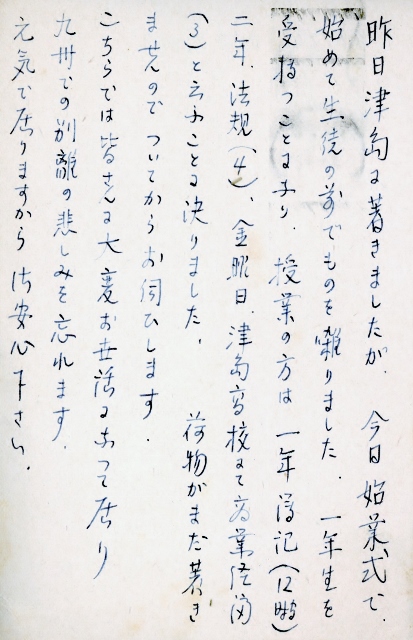 昨日津島に着きましたが、今日始業式で、
始めて生徒の前でものを囃りました．一年生を
受持つことになり．授業の方は一年簿記（12時）
二年．法規（4）、金曜日．津島高校にて商業経済
（3）と云ふことに決りました． 荷物がまだ着き
ませんのでついてからお伺ひします．
こちらでは皆さんに大変お世話になつて居り
九州での別離の悲しみを忘れます．
元気で居りますから御安心下さい．